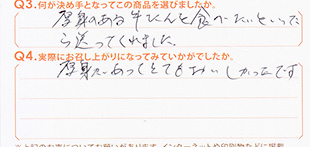 Q3.何が決め手となってこの商品を選びましたか。
厚身のある牛たんと食べたいといった
ら送ってくれました。
Q4.実際にお召し上がりになってみていかがでしたか。
厚身があってとてもおいしかったです